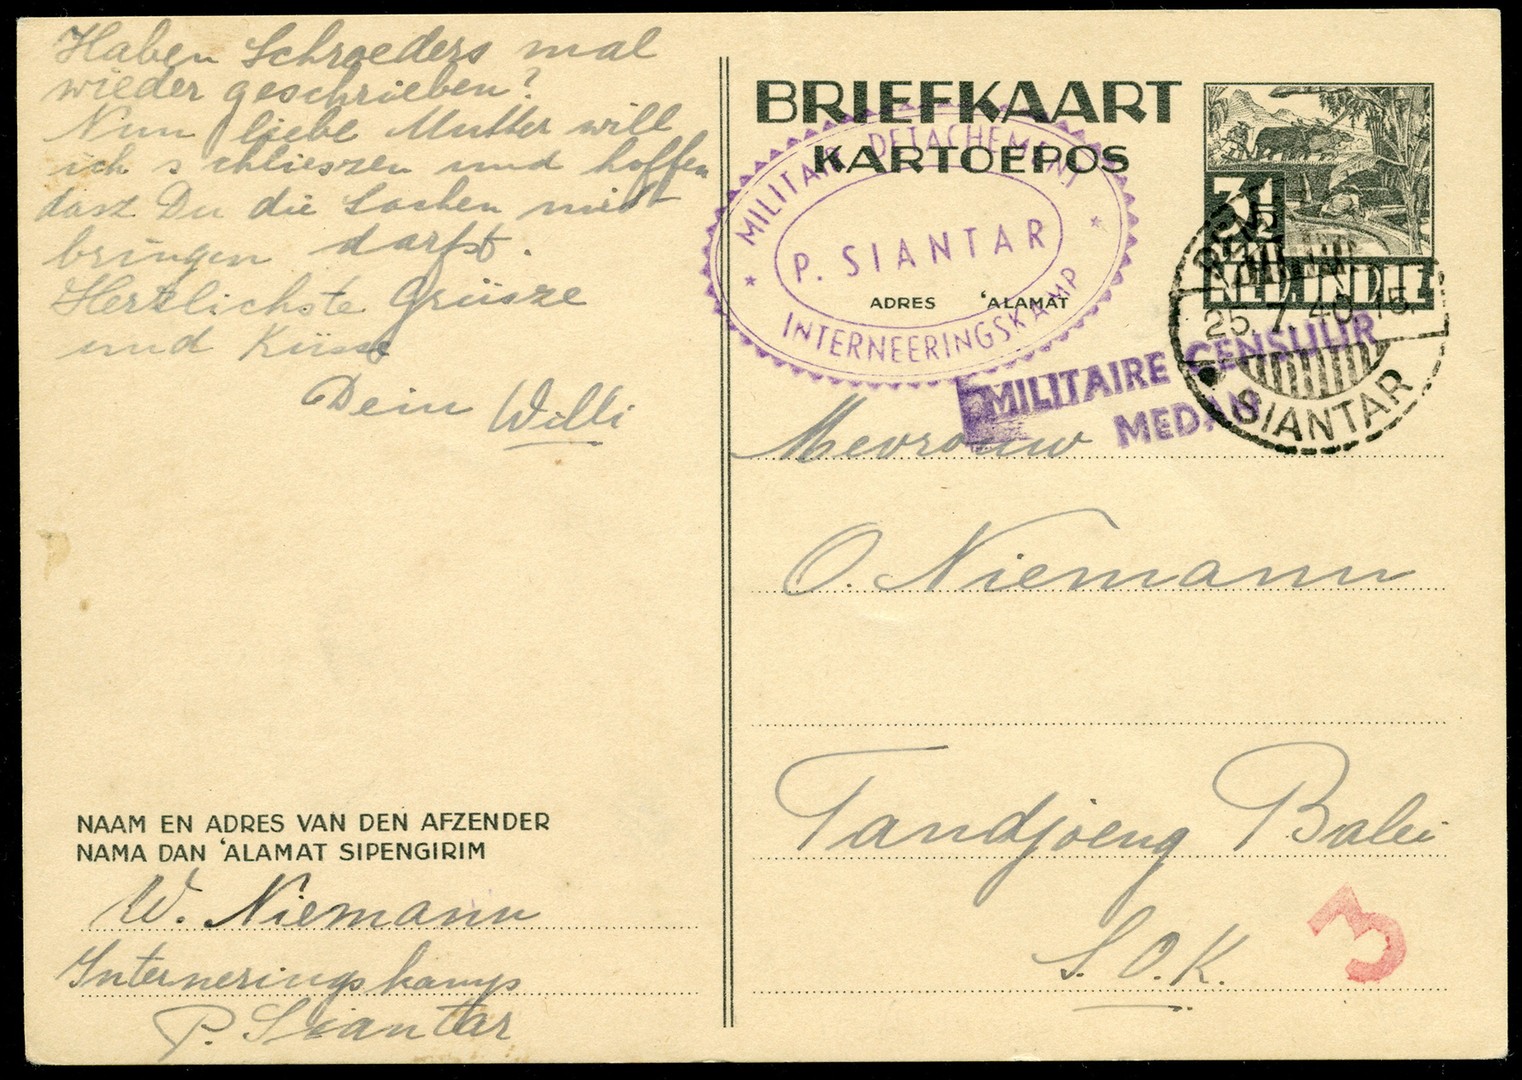 Haben Schroeders mal
wieder geschrieben?
Nun liebe Mutter will
ich schlieszen und hoffen
dasz Du die Sachen mit-
bringen darfst.
Herzlichste Grüsze
und Küsse
Dein Willi
NAAM EN ADRES VAN DEN AFZENDER
NAMA DAN 'ALAMAT SIPENGIRIM
W. Niemann
Interneringskamp
P. Siantar
BRIEFKAART
KARTOEPOS
MILITAIR DETACHEMENT
P. SIANTAR
INTERNEERINGSKAMP
ADRES 'ALAMAT
3½
NED. INDIE
25.7.40.15.
SIANTAR
MILITAIRE CENSUUR
MEDAN
Mevrouw
O. Niemann
Tandjoeng Balei
S.O.K.
3